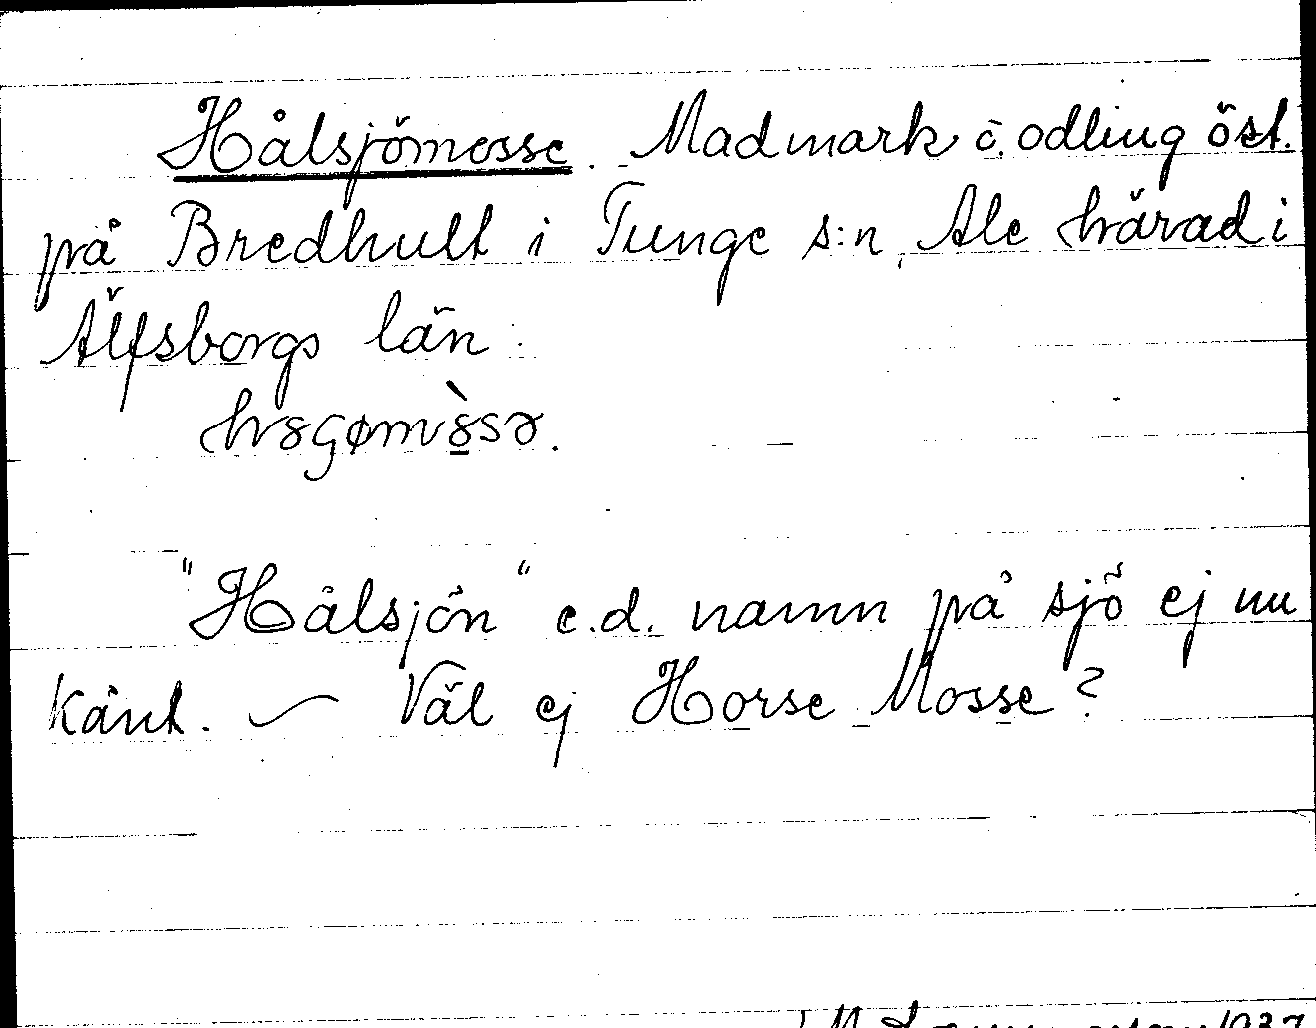 Hålsjömosse. Madmark o. odling öst.
på Bredhult i Tunge s:n, Ale härad i
Älfsborgs län.
"Hålsjön" e.d. namn på sjö ej nu
känt. — Väl ej Horse Mosse?
1937